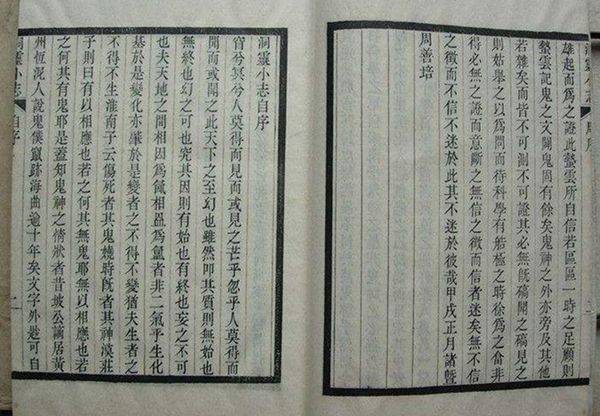 洞靈小志 周序
雄起而爲之證此蟄雲所自信若區區一時之足願則
蟄雲記鬼之文闢鬼固有餘矣鬼神之外亦旁及其他
若雜矣而皆不可測不可證其必無旣碻聞之碻見之
則姑舉之以爲問而待科學有極之時徐爲之畣非
得必無之證而意斷之無信之徵而信者迷矣無不信
之徵而不信不迷於此其不迷於彼哉甲戌正月諸曁
周善培
洞靈小志自序
窅兮冥兮人莫得而見而或見之芒乎忽乎人莫得而
聞而或聞之此天下之至幻也雖然叩其質則無始也
無終也幻之可也究其因則有始也有終也妄之不可
也夫天地之間相因爲相昷爲者非二氣乎生化
基於是變化亦肇於是變者之不得不變猶夫生者之
不得不生淮南子云傷死者其鬼嬈時旣者其神漠莊
子則曰有以相應也若之何其無鬼耶無以相應也若
之何其有鬼耶是蓋知鬼神之情狀者昔坡公謫居黃
州恆泥人說鬼僕竄跡海曲逾十年矣文字外尟可自
洞靈小志 自序 一